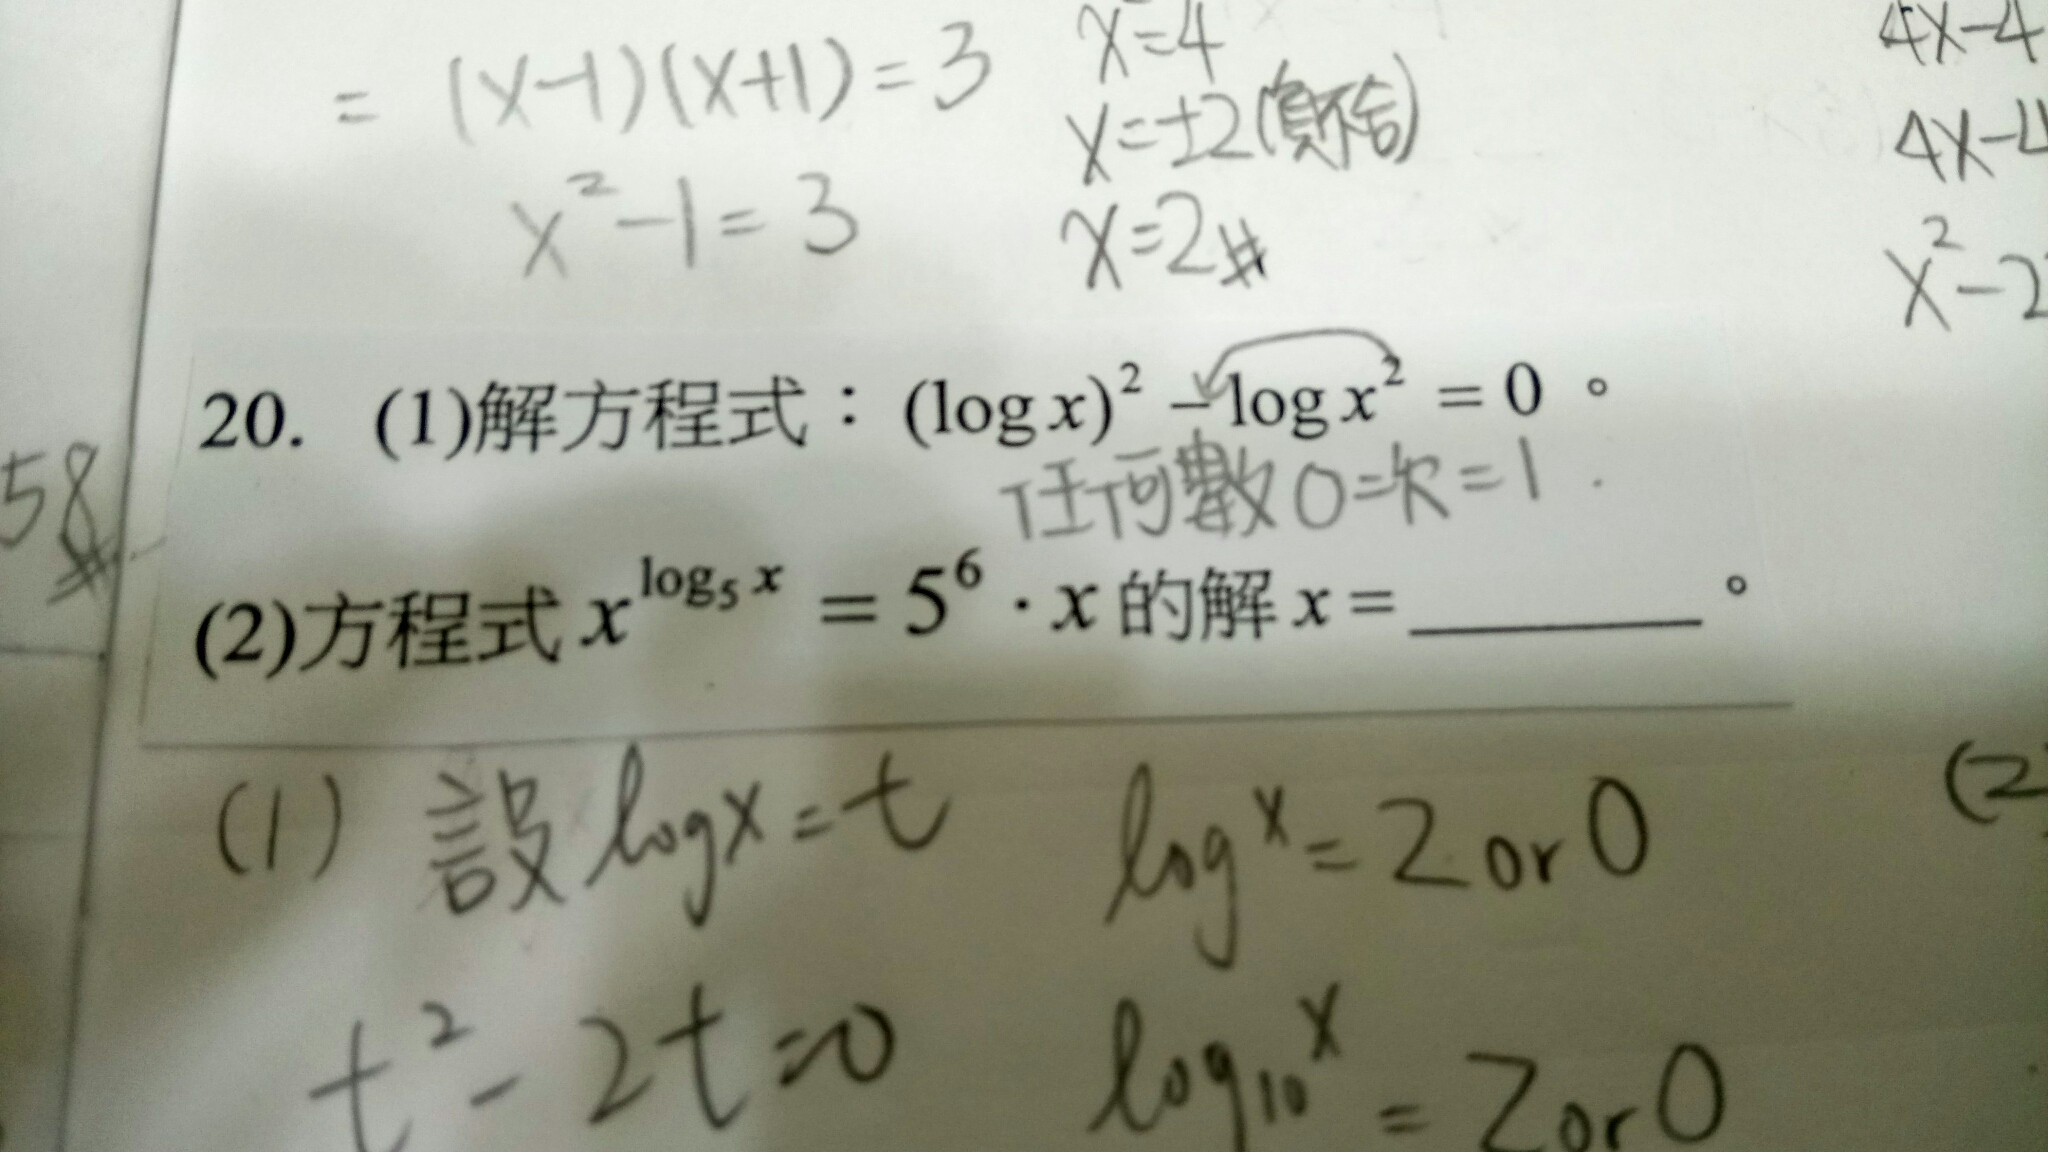 = (x-1)(x+1)=3
x²-1=3
x²=4
x=±2(負不合)
x=2#
4x-4
4x-4
x²-2
58#
20. (1)解方程式：(log x)² - log x² = 0。
任何數0=次=1.
(2)方程式 x^{log₅ x} = 5⁶ · x 的解 x = ________。
(1) 設 log x = t
t² - 2t = 0
log x = 2 or 0
log₁₀ x = 2 or 0
(2